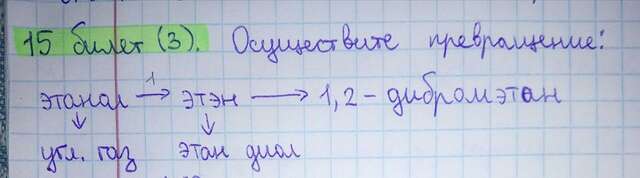 15 билет (3). Осуществите превращение:
1
этанал → этэн → 1,2 - дибромэтан
↓ ↓
угл. газ этан диол